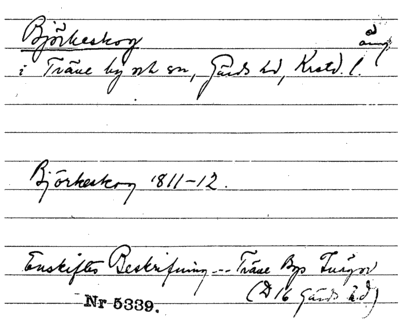 Björkeskog äng.
i Träne by och sn, Gärds hd, Krstd. l.
Björkeskog 1811-12.
Enskiftes Beskrifning --- Träne Bys Inägor
(D 16 Gärds h.d.)
Nr 5339.